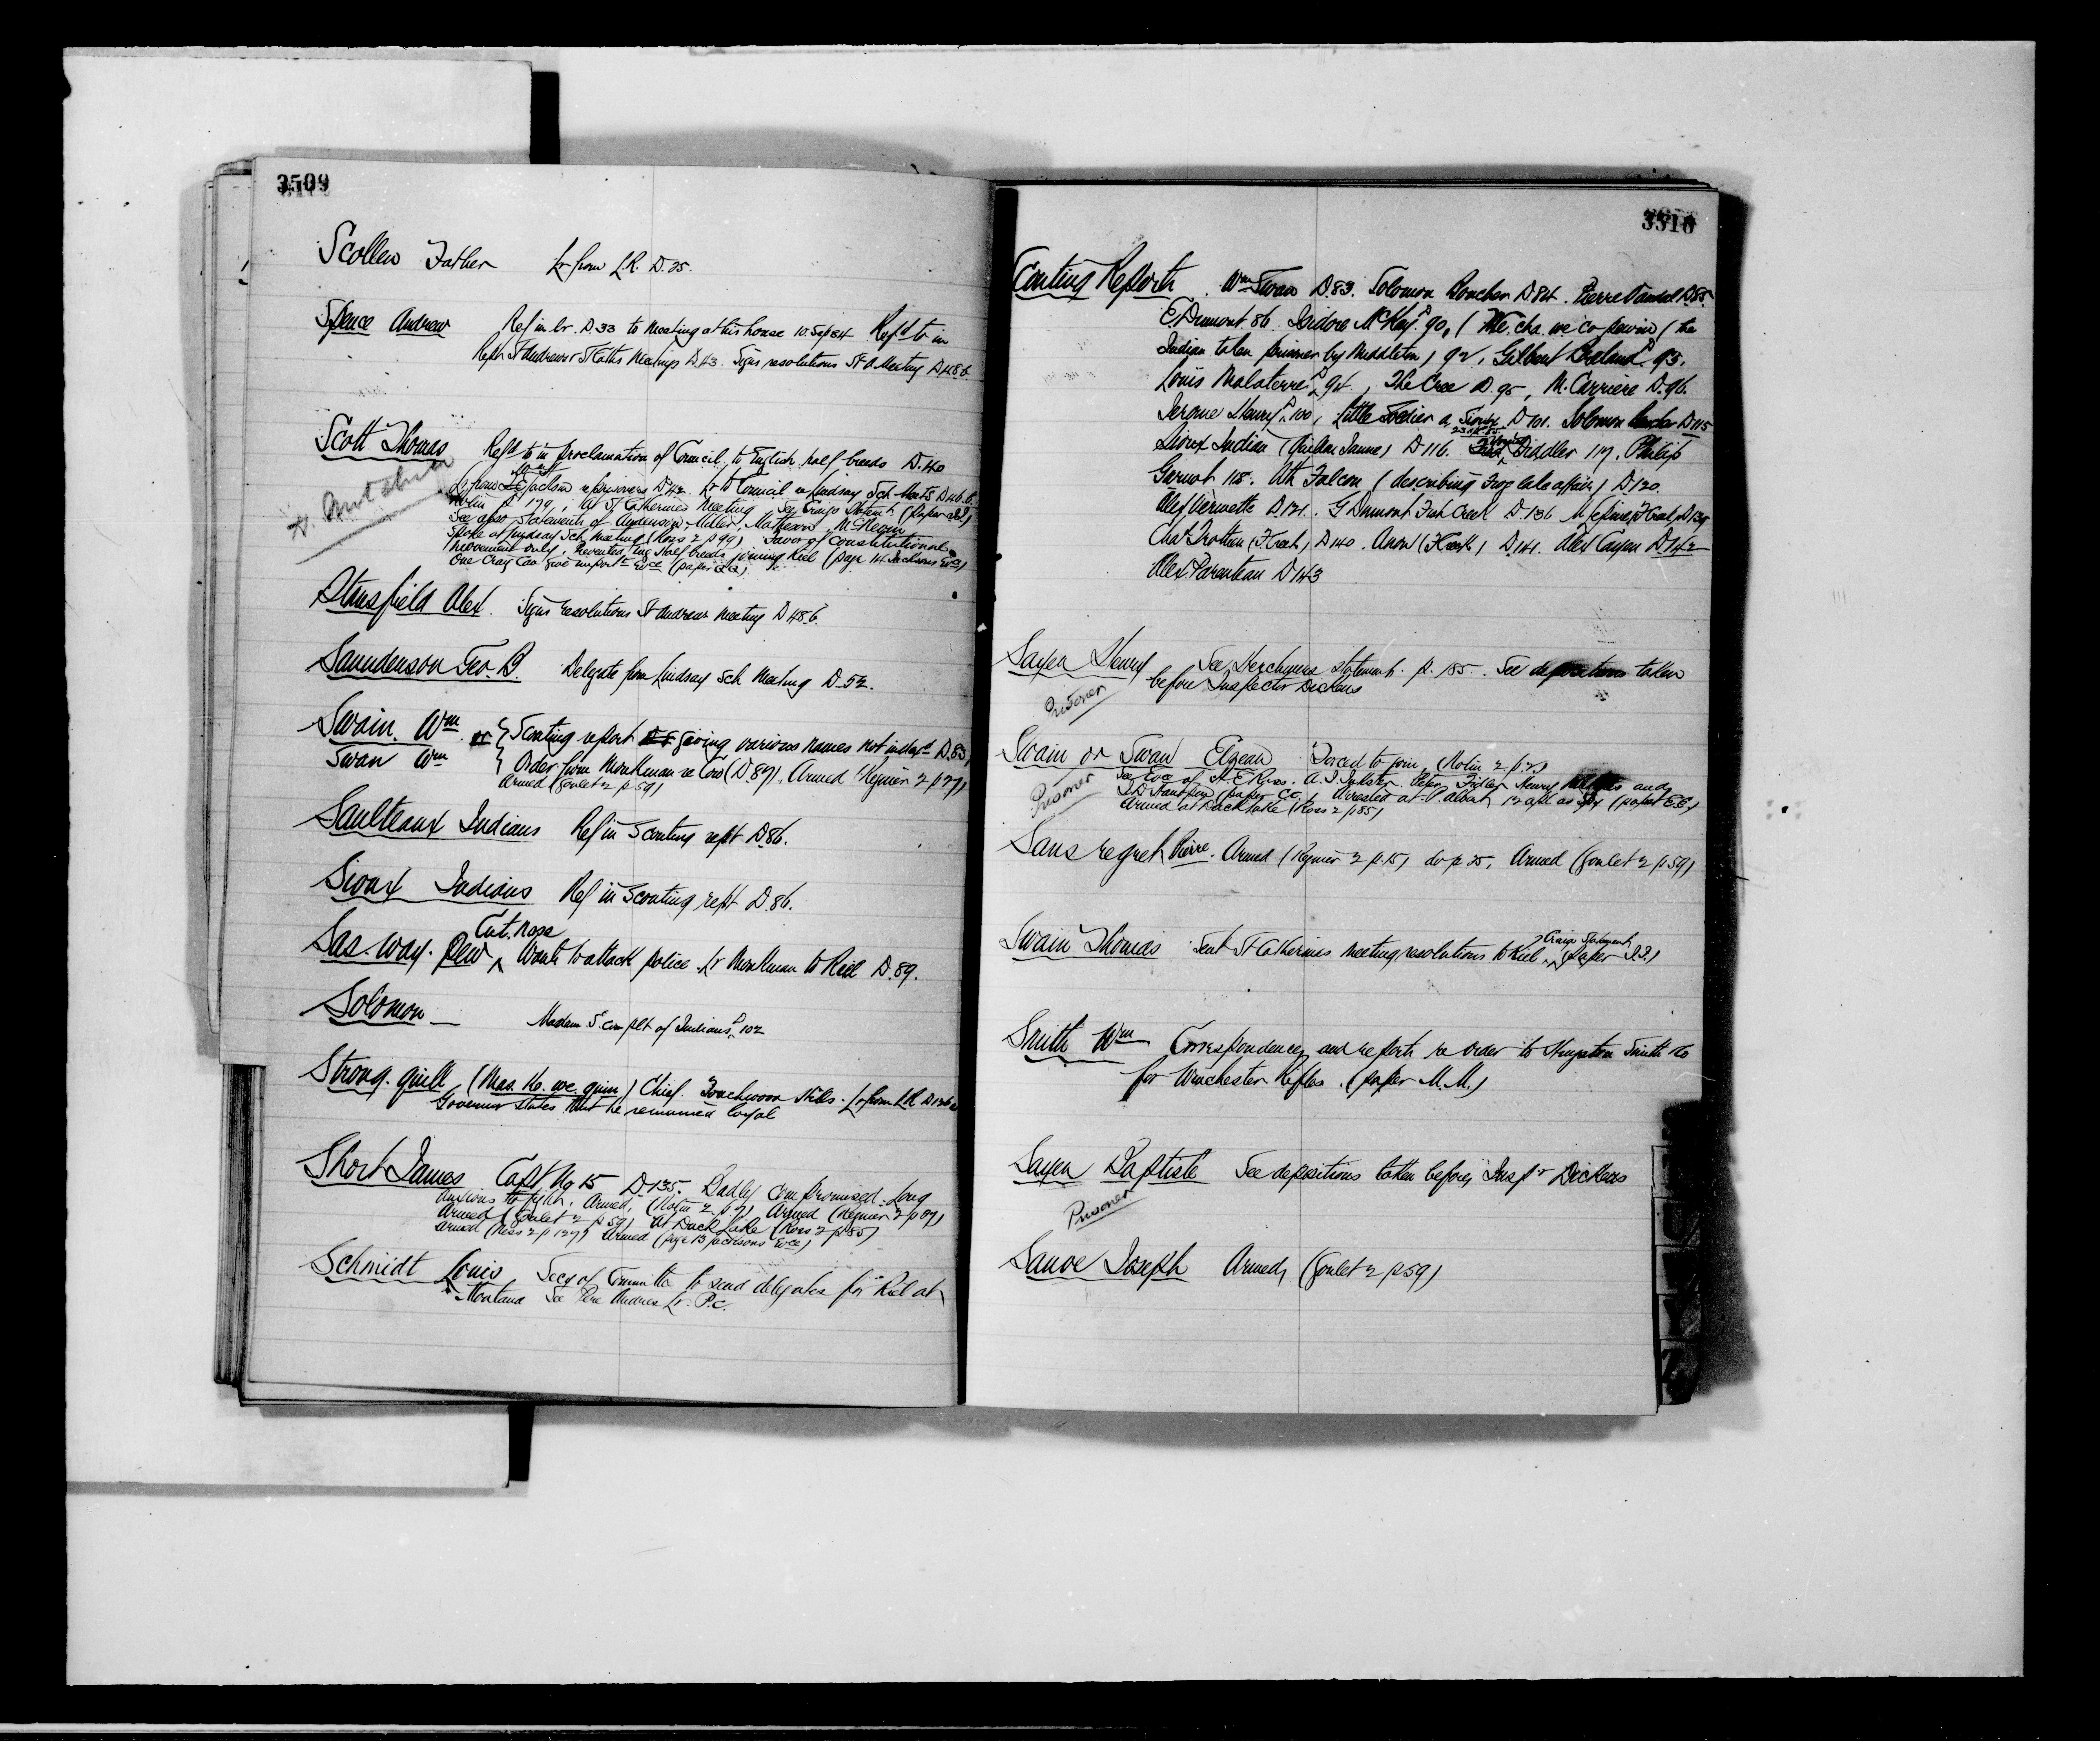 3509
Scollen Father Lr from L.R. D.25.
Spence Andrew Ref in lr. D.33 to Meeting at his house 10 Sep 84 Refd to in
Rept St Andrews & St Caths Meetings D.43. Signs resolutions St A Meeting D 48.b.
Scott Thomas Refd to in proclamation of Council to English half breeds D.40
Lr from Jackson re prisoners D42. Lr to Council re Lindsay Sch Meetg D46.b.
Nolin p 179, At St Catherines Meeting See Craigs Statemt (paper II)
See also statements of Anderson, Miller, Matheson, McKean
Spoke at Lindsay Sch meeting (Ross 2 p 99) Favor of constitutional
movement only. Prevented Eng Half breeds joining Riel (page 14 Jacksons Evce)
One Craig Can give importt Evce (paper QQ)
Stansfield Alex. Signs resolutions St Andrews meeting D 48.b.
Saunderson Geo. B. Delegate from Lindsay Sch Meeting D-52.
Swain. Wm or Scouting report giving various names not indexd D.83
Swan Wm Order from Monkman re Cow (D.89). Armed (Regnier 2 p 27)
Armed (Goulet 2 p 59)
Saulteaux Indians Ref in Scouting rept D.86.
Sioux Indians Ref in Scouting rept D.86.
Cut. nose
Sas. way. pew Wants to attack police Lr Monkman to Riel D.89.
Solomon Madam S. complt of Indians D 102
Strong. quill (Mas. Ko. we. quin) Chief. Touchwood Hills. Lr from LR D126
Governor states that he remained loyal
Short James Capt No 15 D.135. Badly compromised. Long
anxious to fight. Armed, (Nolin 2 p 7) Armed (Regnier 2 p 27)
Armed (Goulet 2 p 59) At Duck Lake (Ross 2 p 85)
Armed (Ness 2 p 127) Armed (page 13 Jacksons Evce)
Schmidt Louis Secy of Committee to send delegates for Riel at
Montana See Pere Andres Lr. P.C.
3510
Scouting Reports. Wm Swan D.83. Solomon Boucher D.84. Pierre Vandal D.85.
E. Dumont 86. Isidore McKay D 90, (We. cha. we. co. pewin) the
Indian taken prisoner by Middleton) 92, Gilbert Breland D 93.
Louis Malaterre D 94, The Cree D.95, M. Carriere D.96.
Jerome Henry D 100, Little Soldier a Sioux D 101. Solomon Boucher D 115
Sioux Indian D 116. Fiddler 117. Philip
Garnot 118. Ath Falcon (describing Frog lake affair) D 120.
Alex Vermette D 121. G Dumont Fish Creek D.136
Chas Trottier (F Creek) D 140. Anon (F Creek) D.141. Alex Cayen D.142
Alex. Parenteau D 143
Sayer Henry See Herchmers statement. p. 185. See depositions taken
Prisoner before Inspector Dickens
Swain or Swan Elzear Forced to join, (Nolin 2 p. 7.)
Prisoner See Evce of H. E. Ross. A. J. Inkster. Peter Fidler Henry and
(paper CC.) Arrested at P. Albert, 12 apl as spy (paper E.E.)
Armed at Duck Lake (Ross 2 p 85)
Sansregret Pierre. Armed (Regnier 2 p 15) do p 25, Armed (Goulet 2 p 59)
Swain Thomas Sent St Catherines Meeting resolutions to Riel, Craigs Statement (paper I.I.)
Smith Wm Correspondence and reports re order to Kingston Smith Co
for Winchester Rifles. (paper M.M.)
Sayer Baptiste See depositions taken before Inspr Dickens
Prisoner
Sauve Joseph Armed, (Goulet 2 p 59)